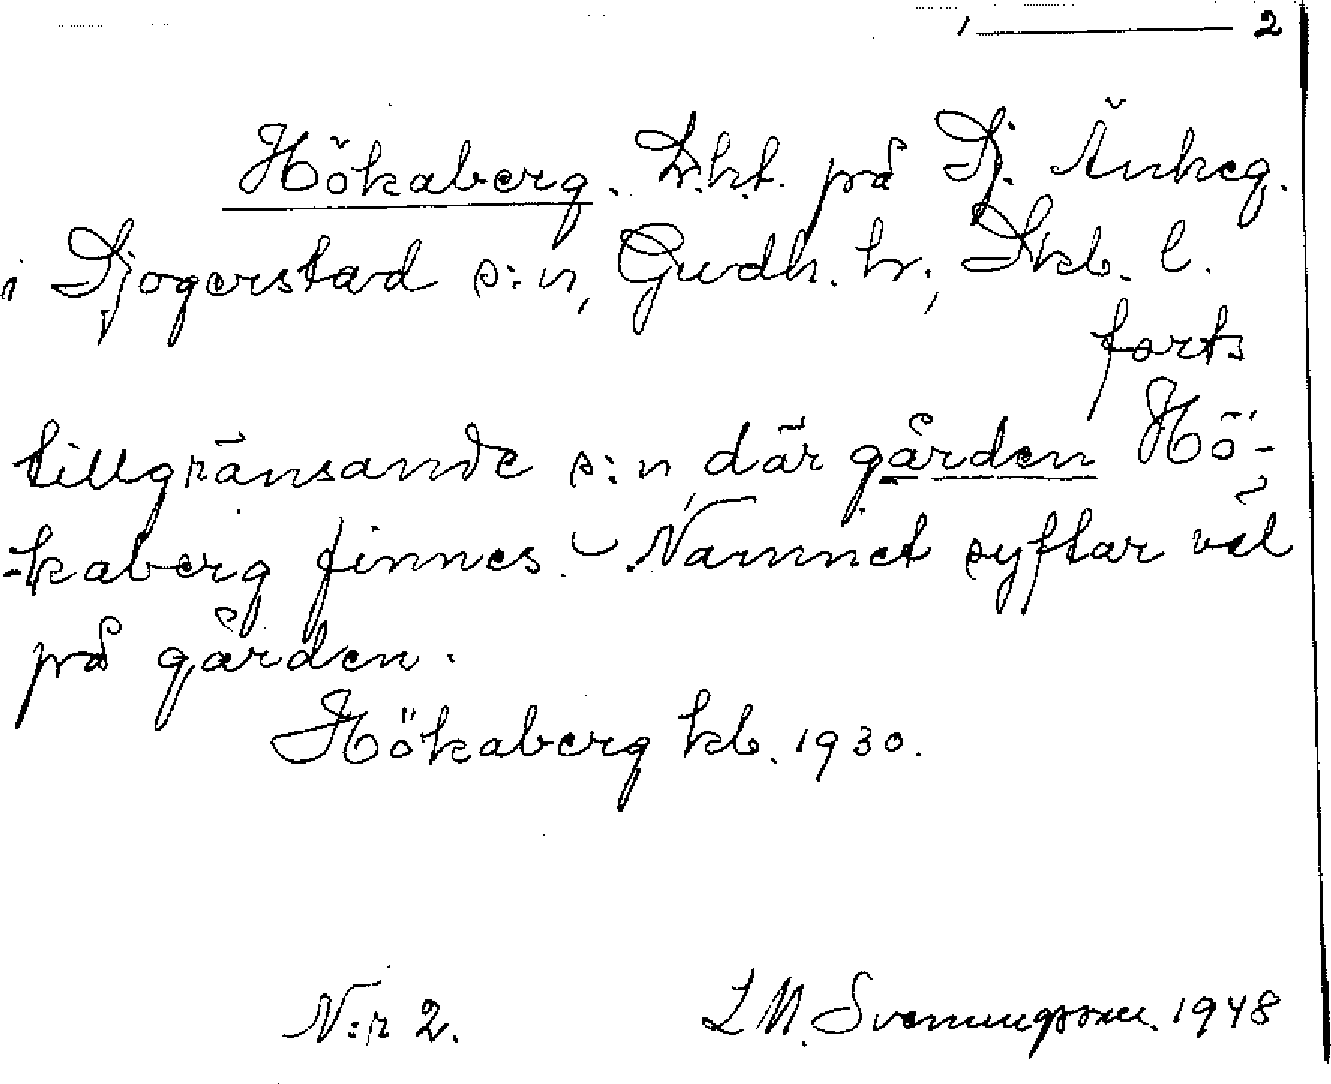 1 ——— 2
Hökaberg. L.h.t. på Dj. Änkeg.
i Djogerstad s:n, Gudh. hr, Skb. l.
forts
tillgränsande s:n, där gården Hö-
-kaberg finnes. - Namnet syftar väl
på gården.
Hökaberg kb. 1930.
N:r 2. L M. Svenungsson. 1948